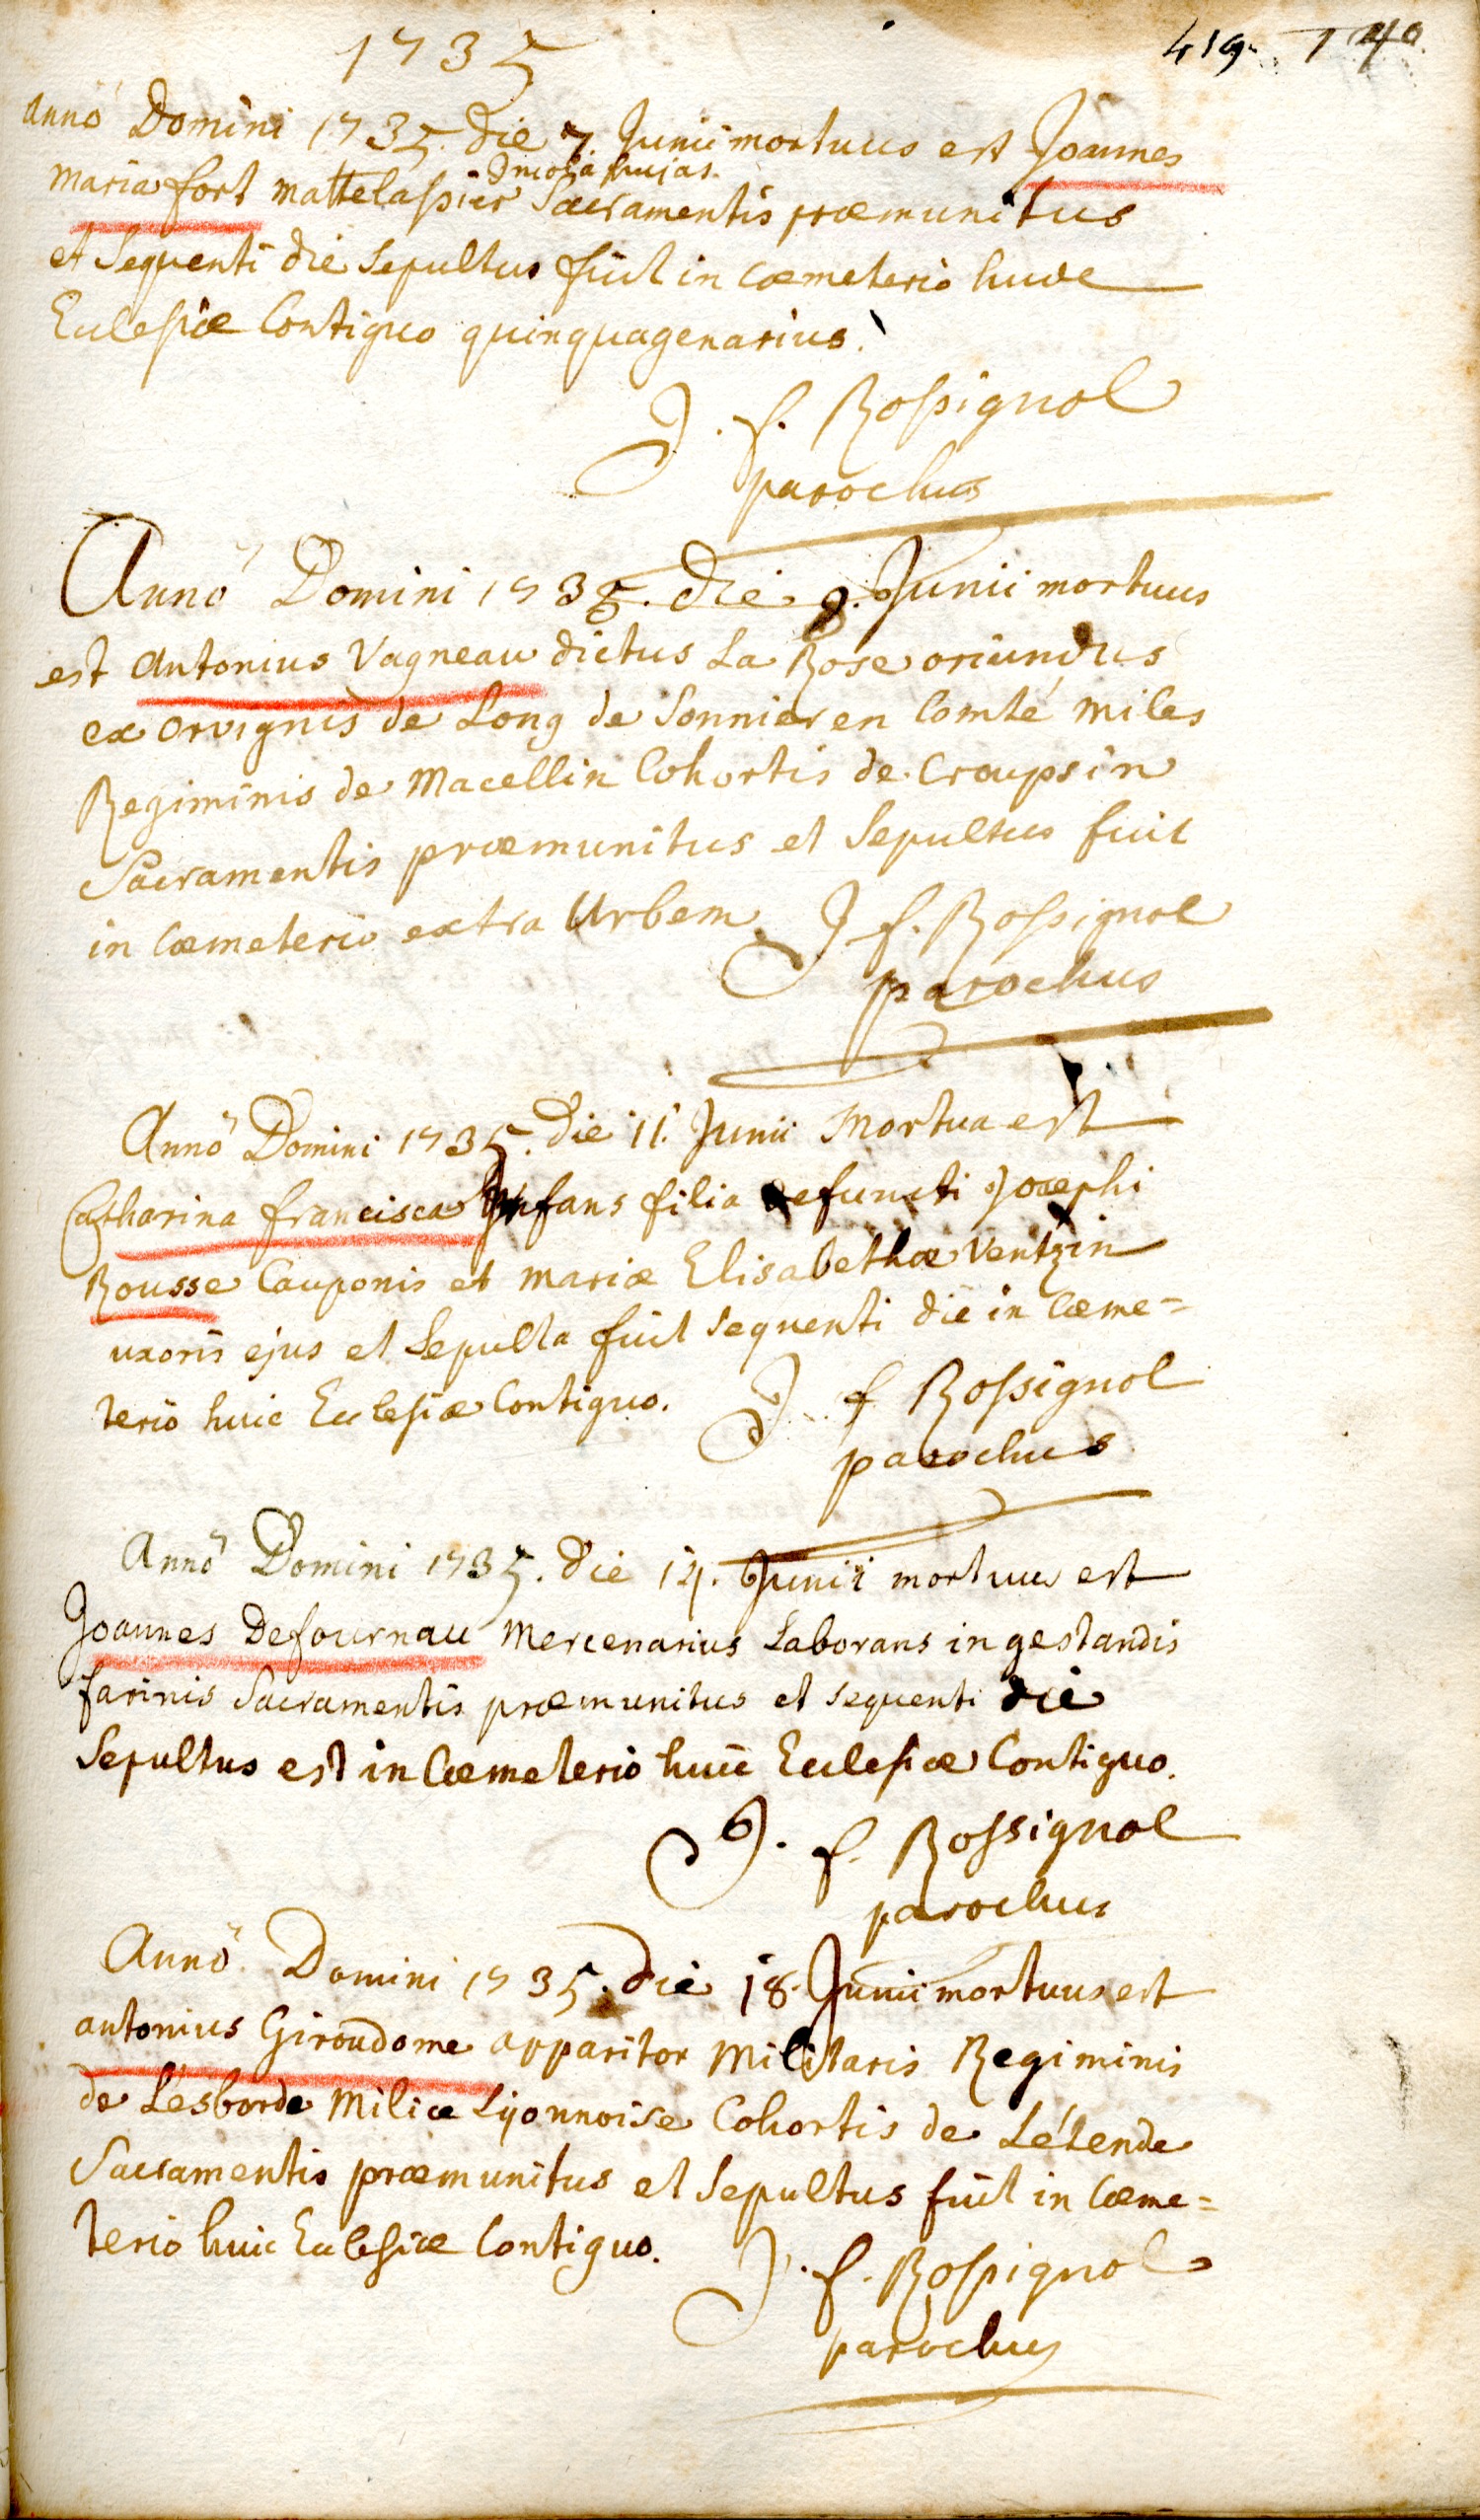 1735
419. 140
Anno Domini 1735. die 7. Junii mortuus est Joannes
Incola hujas.
Maria fort mattelassier Sacramentis præmunitus
et Sequenti die Sepultus fuit in Cœmeterio huic
Eclesiæ Contiguo quinquagenarius.
J. f. Rossignol
parochus
Anno Domini 1735. die 9. Junii mortuus
est Antonius Vagneau dictus La Rose oriundus
ex orvignis de Long de Sonnier en Comté miles
Regiminis de Macellin Cohortis de Craupsin
Sacramentis præmunitus et Sepultus fuit
in Cœmeterio extra Urbem J f. Rossignol
parochus
Anno Domini 1735. Die 11. Junii Mortua est
Catharina francisca Infans filia defuncti Josephi
Rousse Cauponis et mariæ Elisabethæ Ventzin
uxoris ejus et Sepulta fuit Sequenti die in Cœme=
terio huic Eclesiæ Contiguo. J f Rossignol
parochus
Anno Domini 1735. Die 14. Junii mortuus est
Joannes Defournau Mercenarius Laborans in gestandis
farinis Sacramentis præmunitus et sequenti die
Sepultus est in Cœmeterio huic Eclesiæ Contiguo.
J. f. Rossignol
parochus
Anno Domini 1735. die 18. Junii mortuus est
antonius Giroudome apparitor Militaris Regiminis
de Lesborde Milice Lyonnoise Cohortis de Létende
Sacramentis præmunitus et Sepultus fuit in Cœme=
terio huic Eclesiæ Contiguo. J. f. Rossignol
parochus